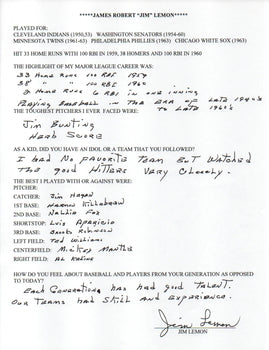 *****JAMES ROBERT "JIM" LEMON*****
PLAYED FOR:
CLEVELAND INDIANS (1950,53) WASHINGTON SENATORS (1954-60)
MINNESOTA TWINS (1961-63) PHILADELPHIA PHILLIES (1963) CHICAGO WHITE SOX (1963)
HIT 33 HOME RUNS WITH 100 RBI IN 1959, 38 HOMERS AND 100 RBI IN 1960
THE HIGHLIGHT OF MY MAJOR LEAGUE CAREER WAS:
33 HOME RUNS 100 RBI 1959
38 " " 100 RBI 1960
3 HOME RUNS 6 RBI in one inning
PLAYING BASEBALL IN THE ERA OF LATE 1940's
TO LATE 1960's
THE TOUGHEST PITCHERS I EVER FACED WERE:
Jim Bunting
Herb Score
AS A KID, DID YOU HAVE AN IDOL OR A TEAM THAT YOU FOLLOWED?
I had No FAVORITE TEAM BUT WATCHED
THE good HITTERS VERY Closely.
THE BEST I PLAYED WITH OR AGAINST WERE:
PITCHER:
CATCHER: Jim Hegan
1st BASE: Harmon Killebrew
2nd BASE: Nellie Fox
SHORTSTOP: Luis Aparicio
3rd BASE: Brooks Robinson
LEFT FIELD: Ted Williams
CENTERFIELD: Mickey Mantle
RIGHT FIELD: Al Kaline
HOW DO YOU FEEL ABOUT BASEBALL AND PLAYERS FROM YOUR GENERATION AS OPPOSED
TO TODAY?
Each Generation has had good Talent.
Our Teams had Skill and Experience.
Jim Lemon
JIM LEMON